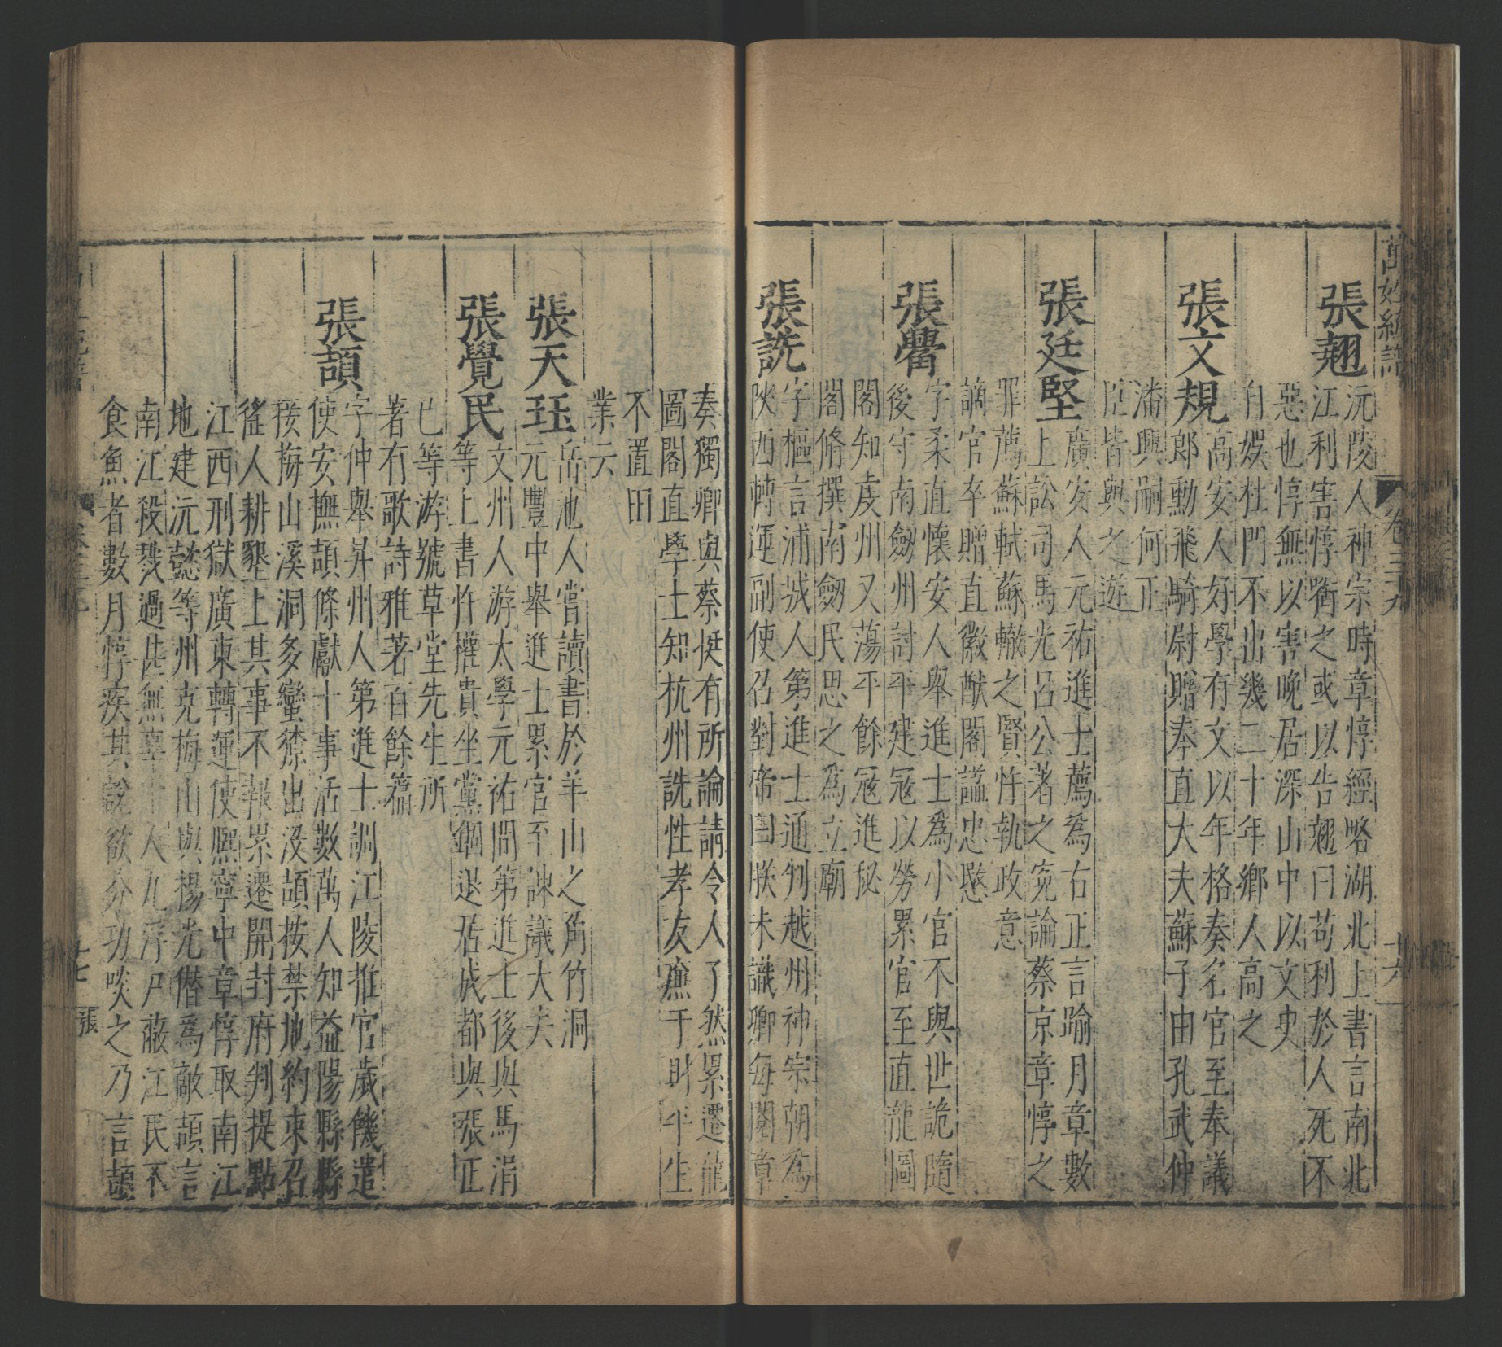 萬姓統譜
卷三十九
十六
張翹
沅陵人神宗時章惇經略湖北上書言南北
江利害惇衝之或以告翹曰苟利於人死不
惡也惇無以害晚居深山中以文史
自娛杜門不出幾二十年鄉人高之
張文規
高安人好學有文以年格奏名官至奉議
郎勳飛騎尉贈奉直大夫蘇子由孔武仲
潘興嗣何正
臣皆與之遊
張廷堅
廣安人元祐進士薦為右正言踰月章數
上訟司馬光呂公著之寃論蔡京章惇之
罪薦蘇軾蘇轍之賢忤執政意
謫官卒贈直徽猷閣謚忠愍
張觷
字柔直懷安人舉進士為小官不與世詭隨
後守南劒州討平建冦以勞累官至直龍圖
閣知虔州又蕩平餘冦進秘
閣脩撰南劒民思之為立廟
張詵
字樞言浦城人第進士通判越州神宗朝為
陝西轉運副使召對帝曰朕未識卿每閱章
奏獨卿與蔡挺有所論請令人了然累遷龍
圖閣直學士知杭州詵性孝友廉于財平生
不置田
業云
張天珏
岳池人嘗讀書於羊山之角竹洞
元豐中舉進士累官至諫議大夫
張覺民
文州人游太學元祐間第進士後與馬涓
等上書忤權貴坐黨錮退居成都與張正
已等游號草堂先生所
著有歌詩雅著百餘篇
張頡
字仲舉昇州人第進士調江陵推官歲饑遣
使安撫頡條獻十事活數萬人知益陽縣縣
接梅山溪洞多蠻獠出沒頡按禁地約束召
徭人耕墾上其事不報累遷開封府判提點
江西刑獄廣東轉運使熙寧中章惇取南江
地建沅懿等州克梅山與楊光僭為敵頡言
南江殺戮過甚無辜十人九浮尸蔽江民不
食魚者數月惇疾其說欲分功啖之乃言頡
卷三十九
十七
張